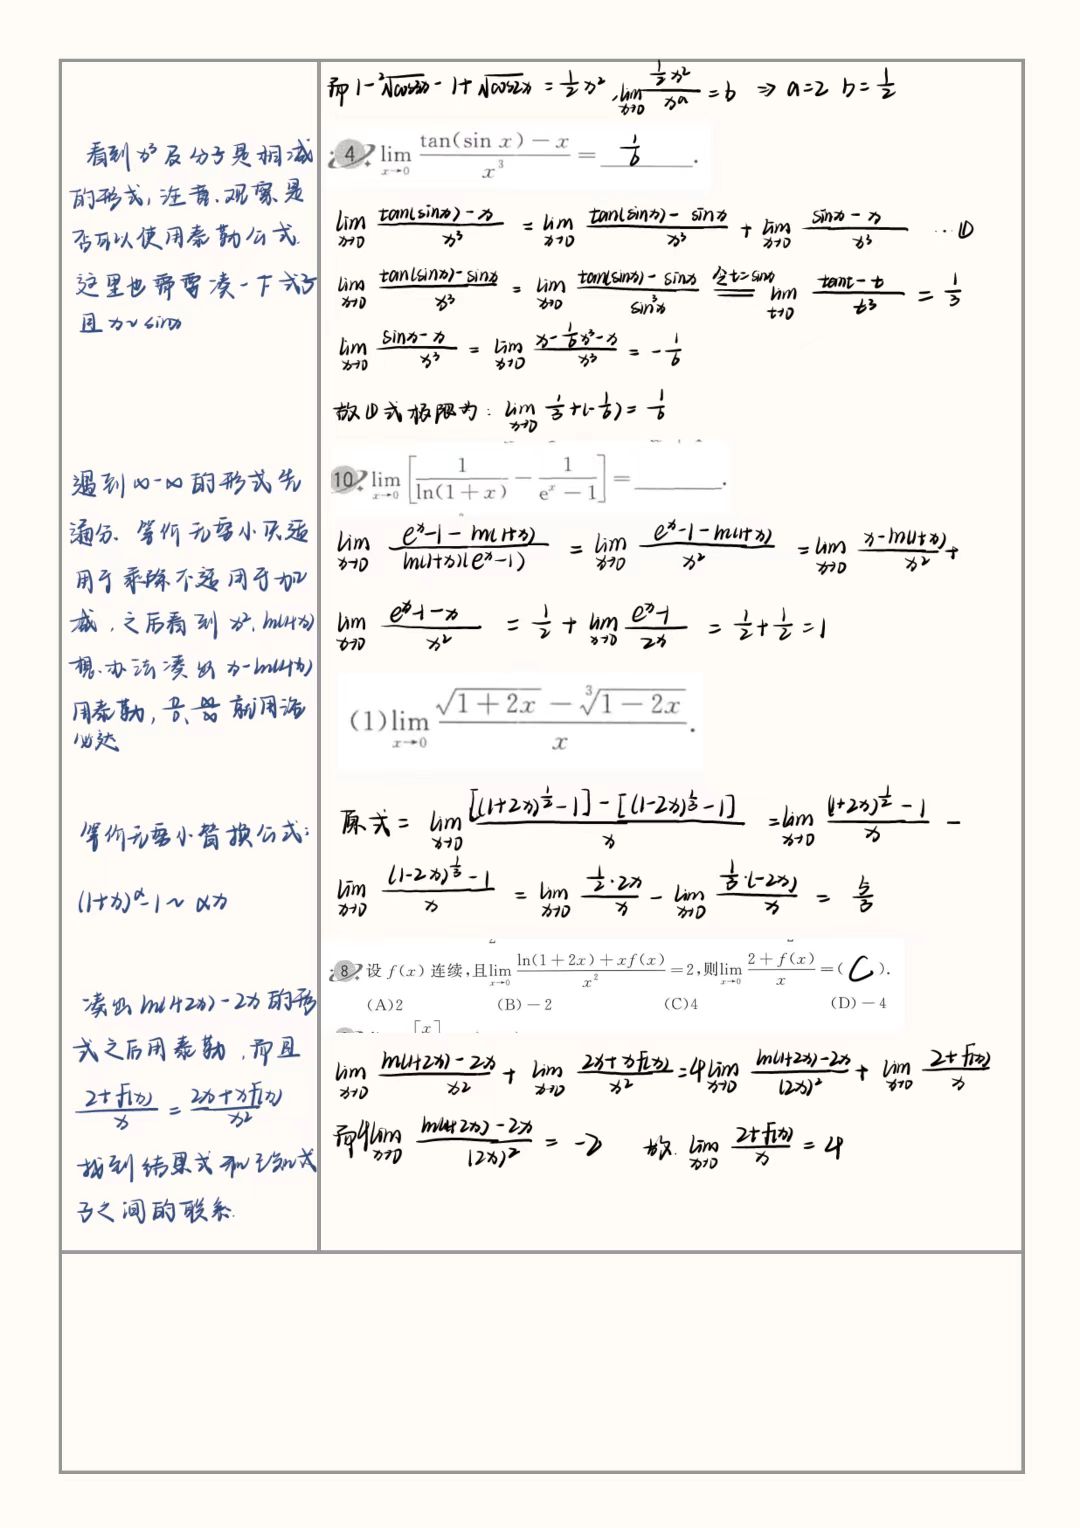 看到x³及分子是相减
的形式,注意,观察是
否可以使用泰勒公式.
这里也需要凑一下式子
且 x~sinx
遇到∞-∞的形式先
通分、等价无穷小只适
用于乘除不适用于加
减,之后看到x²,ln(1+x)
想办法凑出 x-ln(1+x)
用泰勒, 0/0、∞/∞ 就用洛
必达
等价无穷小替换公式:
(1+x)^α-1~αx
凑出 ln(1+2x)-2x 的形
式之后用泰勒,而且
(2+f(x))/x = (2x+xf(x))/x²
找到结果式和已知式
子之间的联系.
1-²√cos2x - 1+√cos2x = 1/2 x², lim x→0 (1/2 x²)/x^a = b ⇒ a=2 b=1/2
4 lim x→0 (tan(sin x)-x)/x³ = 1/6.
lim x→0 (tan(sinx)-x)/x³ = lim x→0 (tan(sinx)-sinx)/x³ + lim x→0 (sinx-x)/x³ …①
lim x→0 (tan(sinx)-sinx)/x³ = lim x→0 (tan(sinx)-sinx)/sin³x 令t=sinx = lim t→0 (tant-t)/t³ = 1/3
lim x→0 (sinx-x)/x³ = lim x→0 (x-1/6x³-x)/x³ = -1/6
故①式极限为: lim x→0 1/3+(-1/6)= 1/6
10 lim x→0 [1/ln(1+x) - 1/(e^x-1)] = ______.
lim x→0 (e^x-1-ln(1+x))/(ln(1+x)(e^x-1)) = lim x→0 (e^x-1-ln(1+x))/x² = lim x→0 (x-ln(1+x))/x² +
lim x→0 (e^x-1-x)/x² = 1/2 + lim x→0 (e^x-1)/2x = 1/2+1/2=1
(1) lim x→0 (√(1+2x) - ³√(1-2x))/x.
原式= lim x→0 ([(1+2x)^(1/2)-1]-[(1-2x)^(1/3)-1])/x = lim x→0 ((1+2x)^(1/2)-1)/x -
lim x→0 ((1-2x)^(1/3)-1)/x = lim x→0 (1/2·2x)/x - lim x→0 (1/3·(-2x))/x = 5/3
8 设 f(x) 连续,且 lim x→0 (ln(1+2x)+xf(x))/x² =2,则 lim x→0 (2+f(x))/x =( C ).
(A)2 (B)-2 (C)4 (D)-4
[x]
lim x→0 (ln(1+2x)-2x)/x² + lim x→0 (2x+xf(x))/x² = 4 lim x→0 (ln(1+2x)-2x)/(2x)² + lim x→0 (2+f(x))/x
而4 lim x→0 (ln(1+2x)-2x)/(2x)² = -2 故. lim x→0 (2+f(x))/x = 4